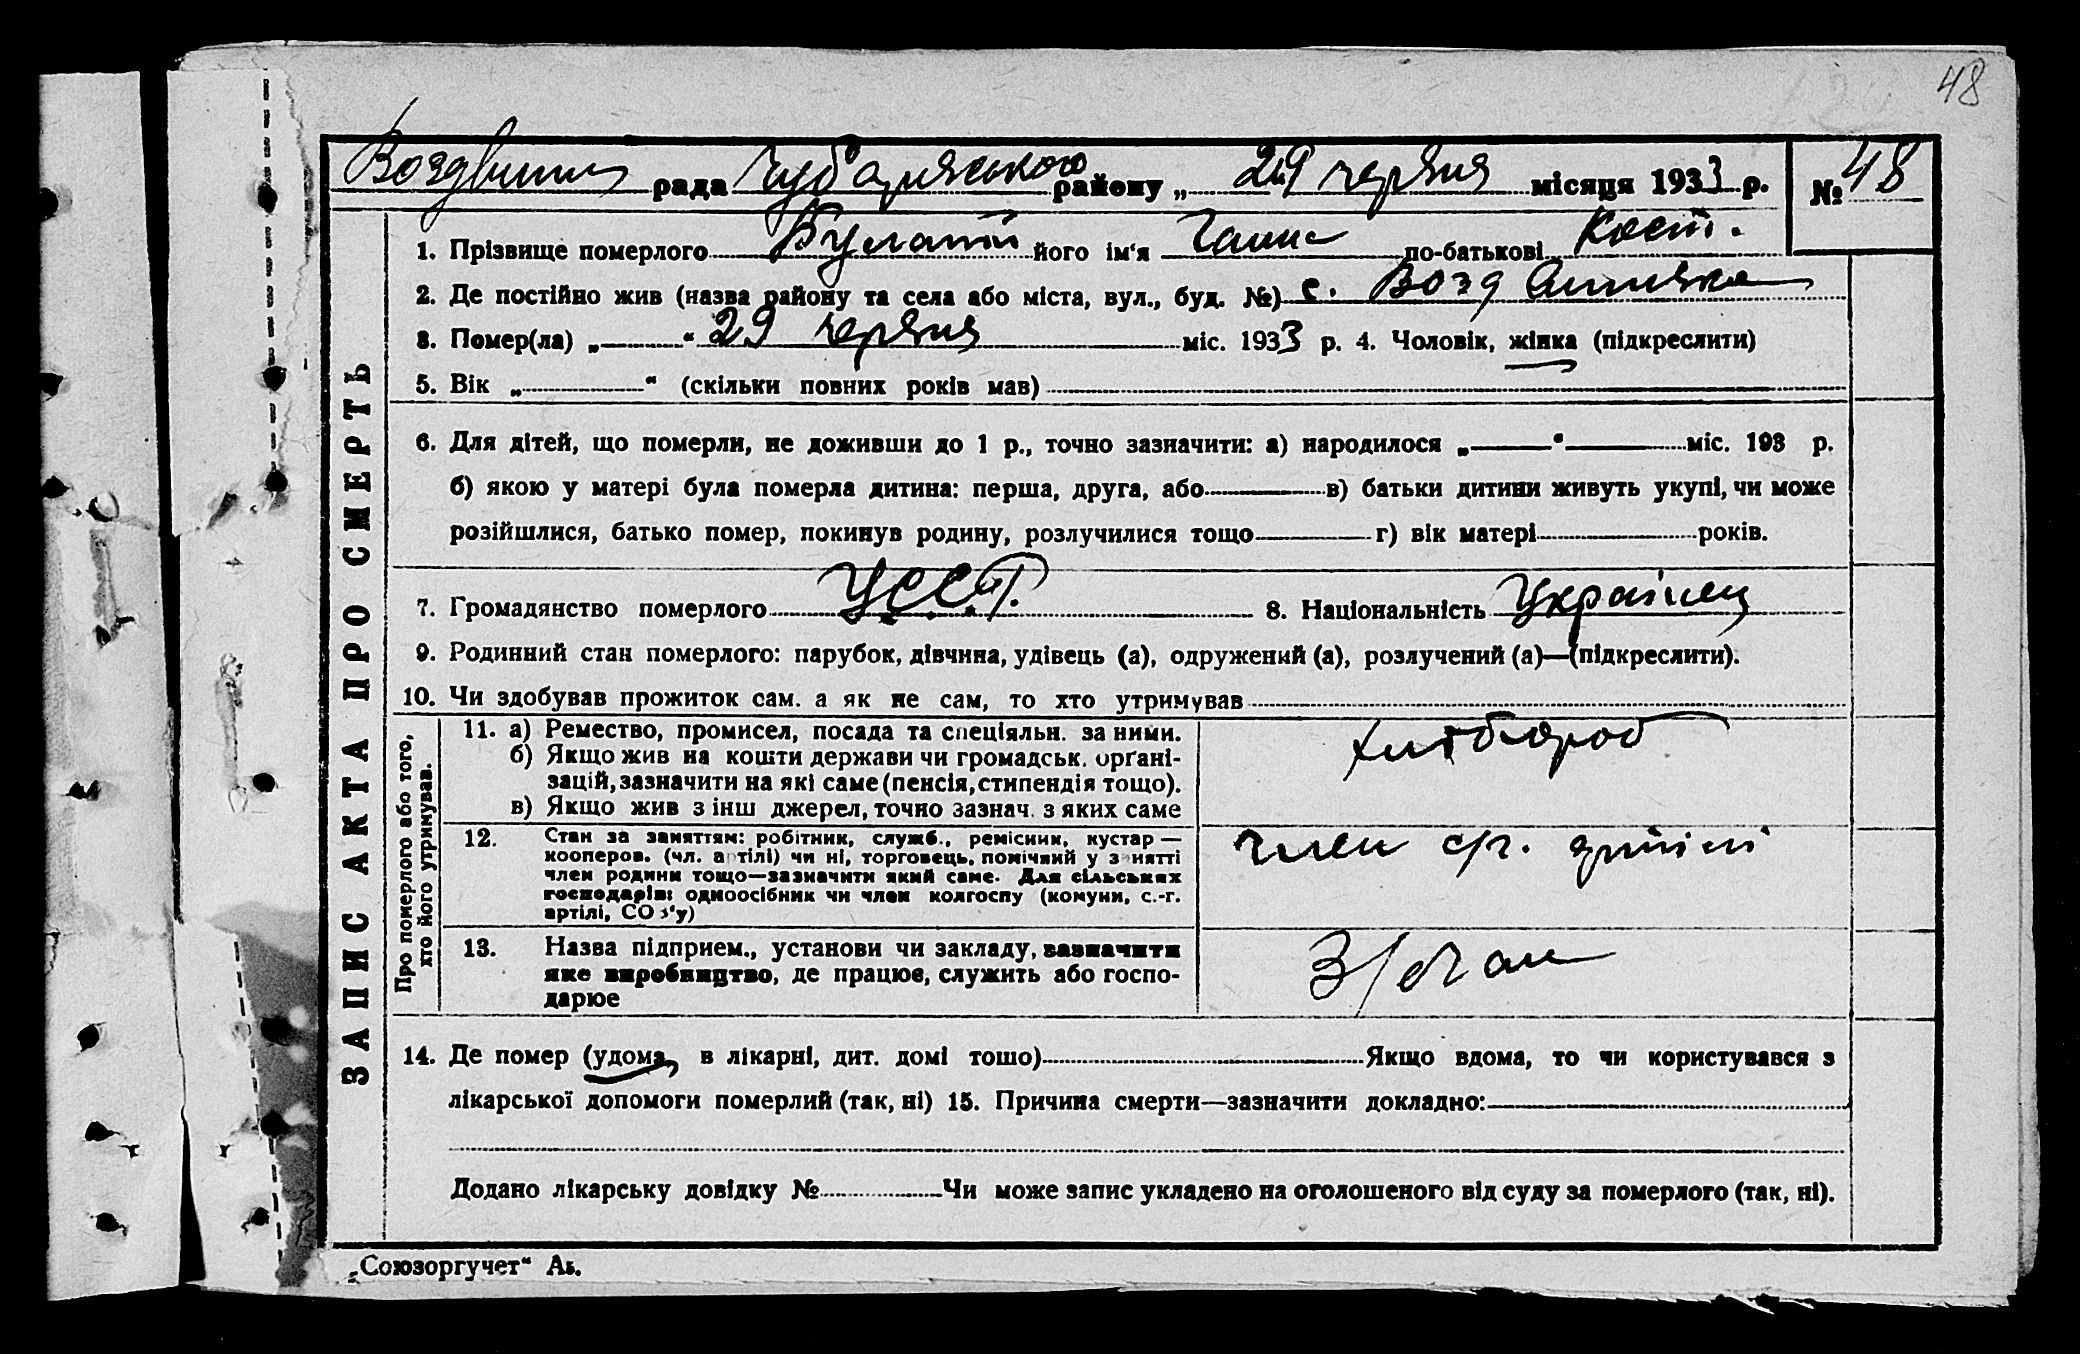 48
рада Чубарівського району „ 29 червня місяця 1933 р. № 48
ЗАПИС АКТА ПРО СМЕРТЬ
1. Прізвище померлого його ім'я Ганна по-батькові Кост.
2. Де постійно жив (назва району та села або міста, вул., буд. №) с.
3. Помер(ла) „ “ 29 червня міс. 1933 р. 4. Чоловік, жінка (підкреслити)
5. Вік „ “ (скільки повних років мав)
6. Для дітей, що померли, не доживши до 1 р., точно зазначити: а) народилося „ “ міс. 193 р.
б) якою у матері була померла дитина: перша, друга, або в) батьки дитини живуть укупі, чи може
розійшлися, батько помер, покинув родину, розлучилися тощо г) вік матері років.
7. Громадянство померлого УССР. 8. Національність Українец
9. Родинний стан померлого: парубок, дівчина, удівець (а), одружений (а), розлучений (а)—(підкреслити).
10. Чи здобував прожиток сам. а як не сам, то хто утримував
Про померлого або того,
хто його утримував.
11. а) Ремество, промисел, посада та спеціяльн. за ними.
б) Якщо жив на кошти держави чи громадськ. орґані-
зацій, зазначити на які саме (пенсія, стипендія тощо).
в) Якщо жив з інш джерел, точно зазнач. з яких саме
хлібороб
12. Стан за заняттям: робітник, служб., ремісник, кустар—
кооперов. (чл. артілі) чи ні, торговець, помічний у занятті
член родини тощо—зазначити який саме. Для сільських
господарів: одноосібник чи член колгоспу (комуни, с.-г.
артілі, СОЗ'у)
член с/г. артілі
13. Назва підприєм., установи чи закладу, зазначити
яке виробництво, де працює, служить або госпо-
дарює
14. Де помер (удома, в лікарні, дит. домі тошо) Якщо вдома, то чи користувався з
лікарської допомоги померлий (так, ні) 15. Причина смерти—зазначити докладно:
Додано лікарську довідку № Чи може запис укладено на оголошеного від суду за померлого (так, ні).
„Союзоргучет“ Аь.